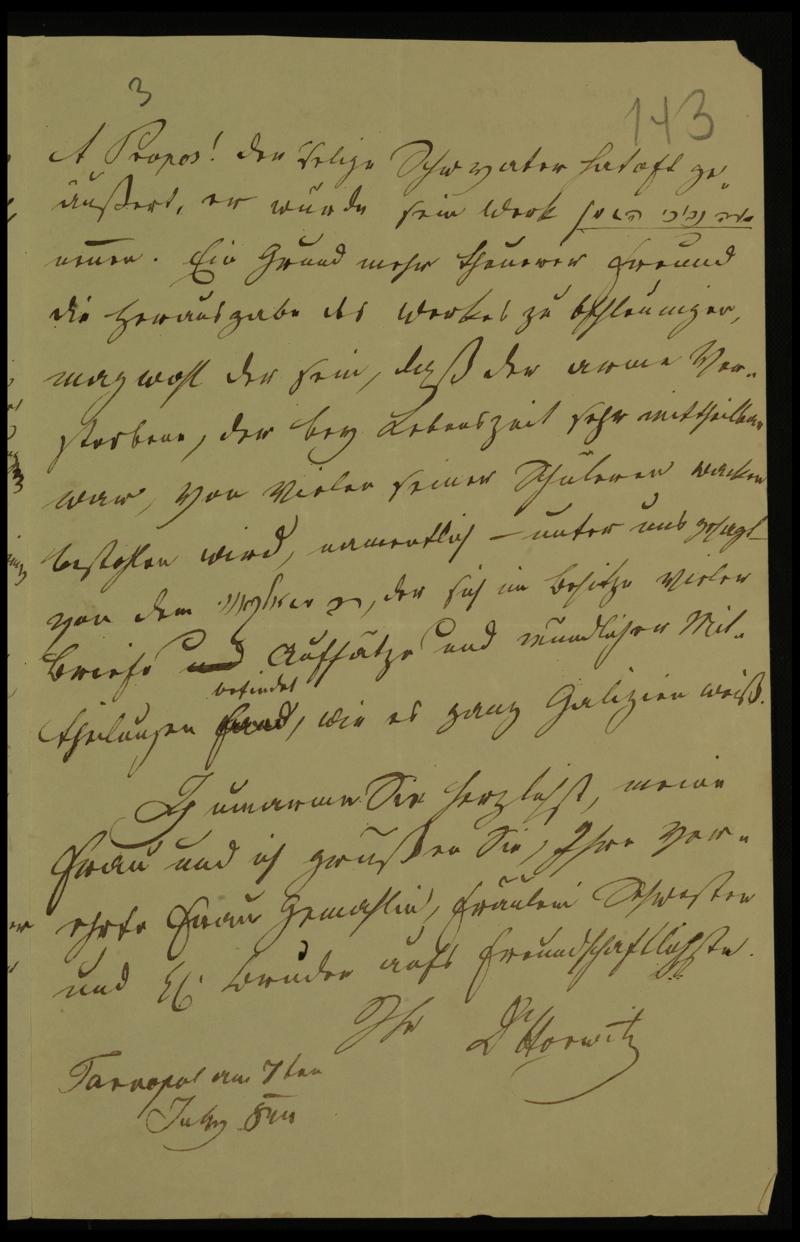 3
143
A Propos! der selige Schwvater hat oft ge„
äußert, er würde sein Werk מורה נבוכי הזמן
nennen. Ein Grund mehr theuerer Freund
die Herausgabe des Werkes zu beschleunigen,
mag wohl der sein, daß der arme Ver„
storbene, der bey Lebenszeit sehr mittheilbar
war, von vielen seiner Schülern wacker
bestohlen wird, namentlich – unter uns gesagt –
von dem, der sich im Besitze vieler
Briefe und Aufsätze und mündlicher Mit„
befindet
theilungen fand, wie es ganz Galizien weiß.
Ich umarme Sie herzlichst, meine
Frau und ich grüßen Sie, Ihre ver„
ehrte Frau Gemahlin, Fräulein Schwester
und H. Bruder aufs freundschaftlichste.
Ihr D Horwitz
Tarnopol am 7ten
July